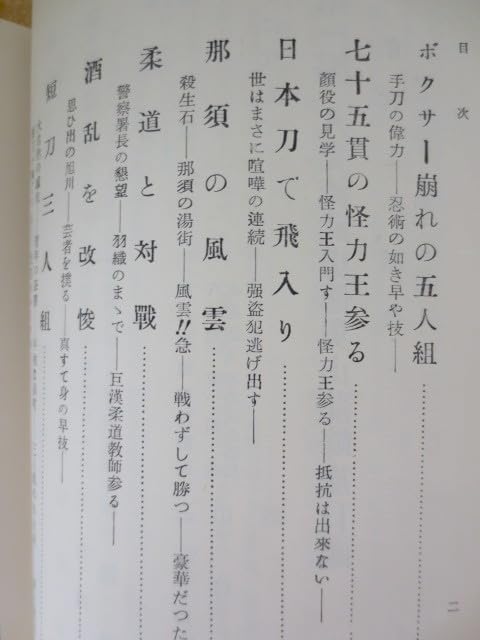 目次
ボクサー崩れの五人組
手刀の偉力――忍術の如き早や技――
七十五貫の怪力王参る
顔役の見学――怪力王入門す――怪力王参る――抵抗は出來ない――
日本刀で飛入り
世はまさに喧嘩の連続――强盗犯逃げ出す――
那須の風雲
殺生石――那須の湯街――風雲!!急――戦わずして勝つ――豪華だつた
柔道と対戰
警察署長の懇望――羽織のまゝで――巨漢柔道教師参る――
酒乱を改悛
思ひ出の旭川――芸者を撲る――真すて身の早技――
短刀三人組
二